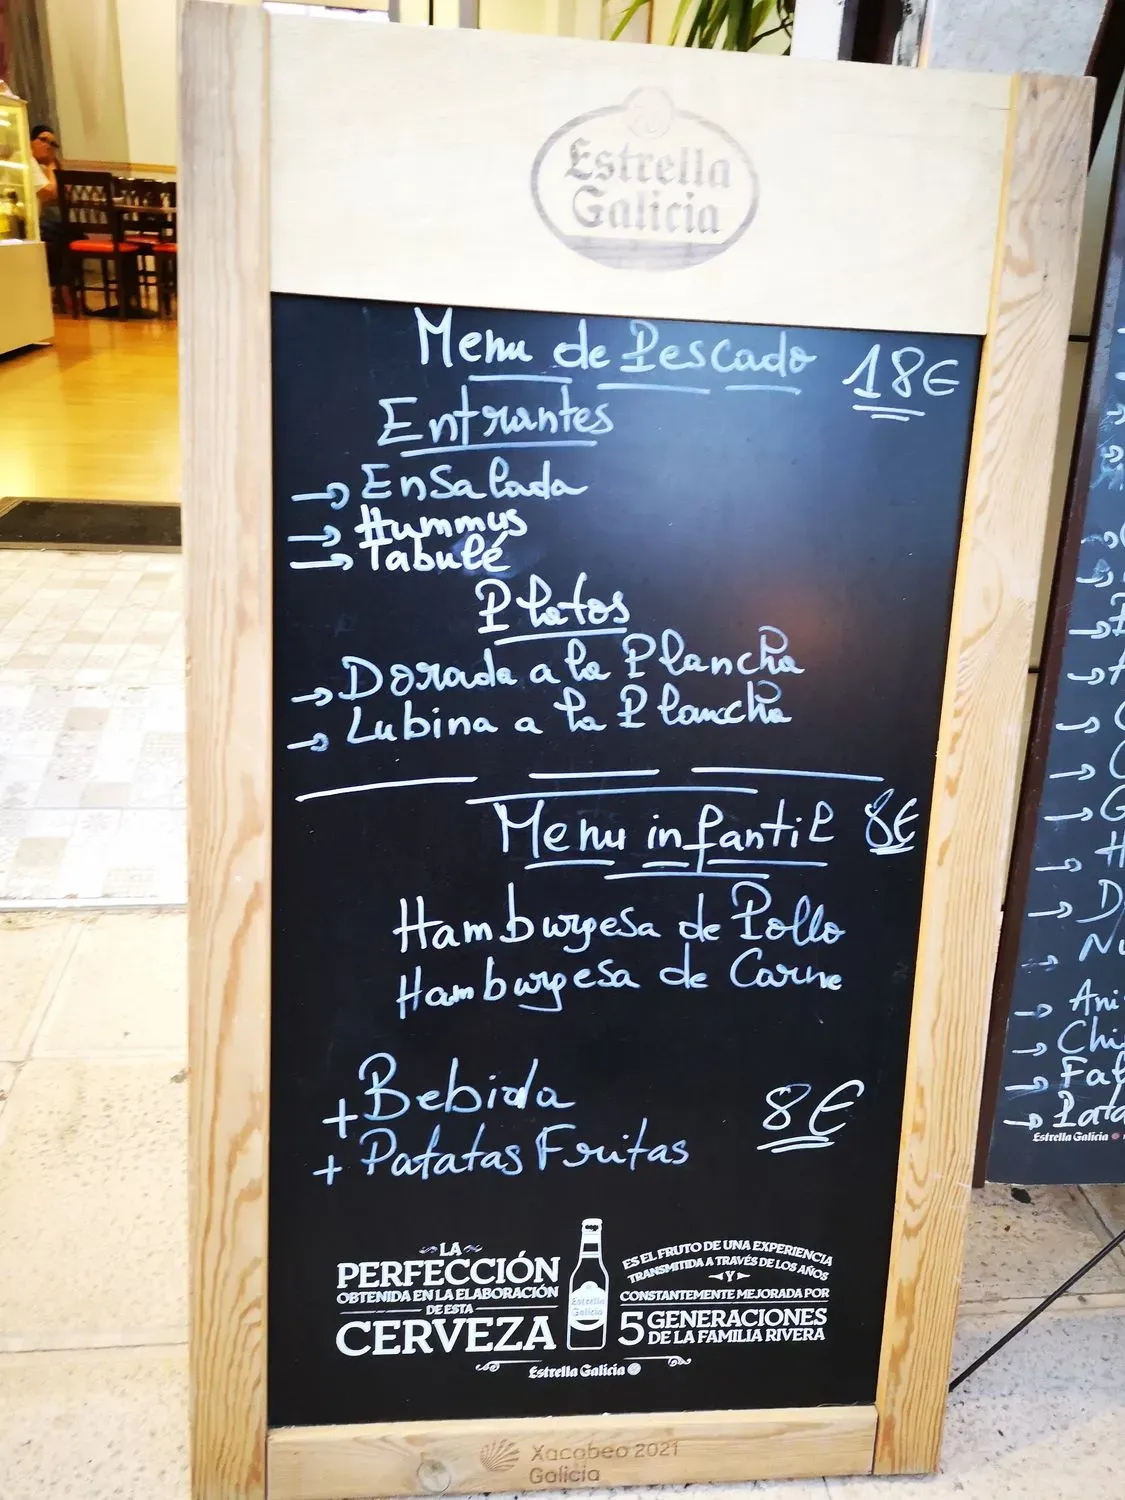 Estrella
Galicia
Menu de Pescado 18€
Entrantes
→ Ensalada
→ Hummus
→ Tabulé
Platos
→ Dorada a la Plancha
→ Lubina a la Plancha
Menu infantil 8€
Hamburgesa de Pollo
Hamburgesa de Carne
+ Bebida 8€
+ Patatas Fritas
LA
PERFECCIÓN
OBTENIDA EN LA ELABORACIÓN
DE ESTA
CERVEZA
Estrella
Galicia
ES EL FRUTO DE UNA EXPERIENCIA
TRANSMITIDA A TRAVÉS DE LOS AÑOS
Y
CONSTANTEMENTE MEJORADA POR
5 GENERACIONES
DE LA FAMILIA RIVERA
Estrella Galicia
Xacobeo 2021
Galicia
→ Ani
→ Chi
→ Fal
→ Pata
Estrella Galicia